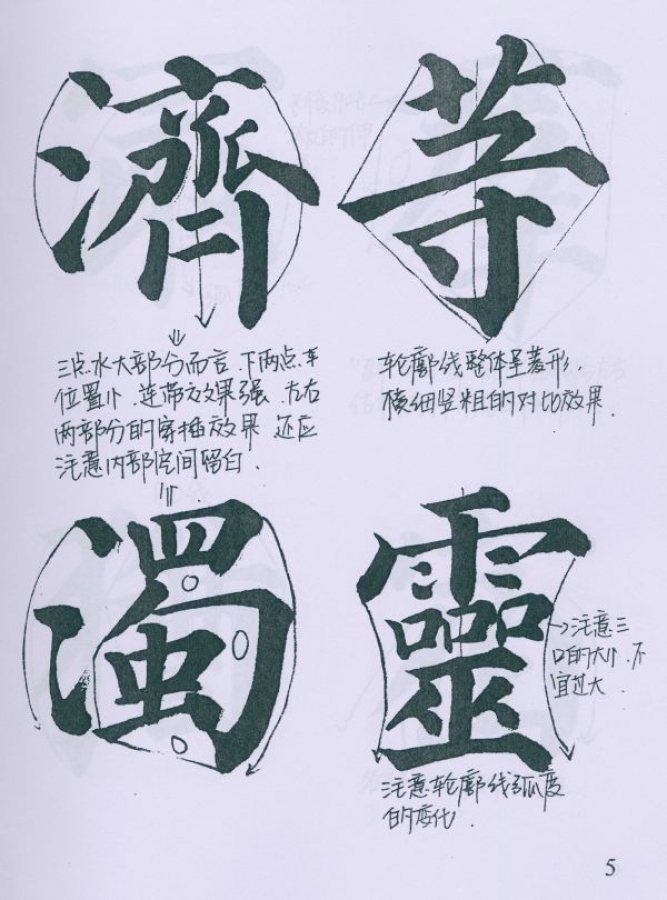 濟
等
三点水大部分而言.下两点
位置小.连带效果强.左右
两部分的穿插效果 还应
注意内部空间留白.
轮廓线整体呈菱形.
横细竖粗的对比效果.
濁
靈
→注意三
口的大小.不
宜过大.
注意轮廓线弧度
的变化.
5